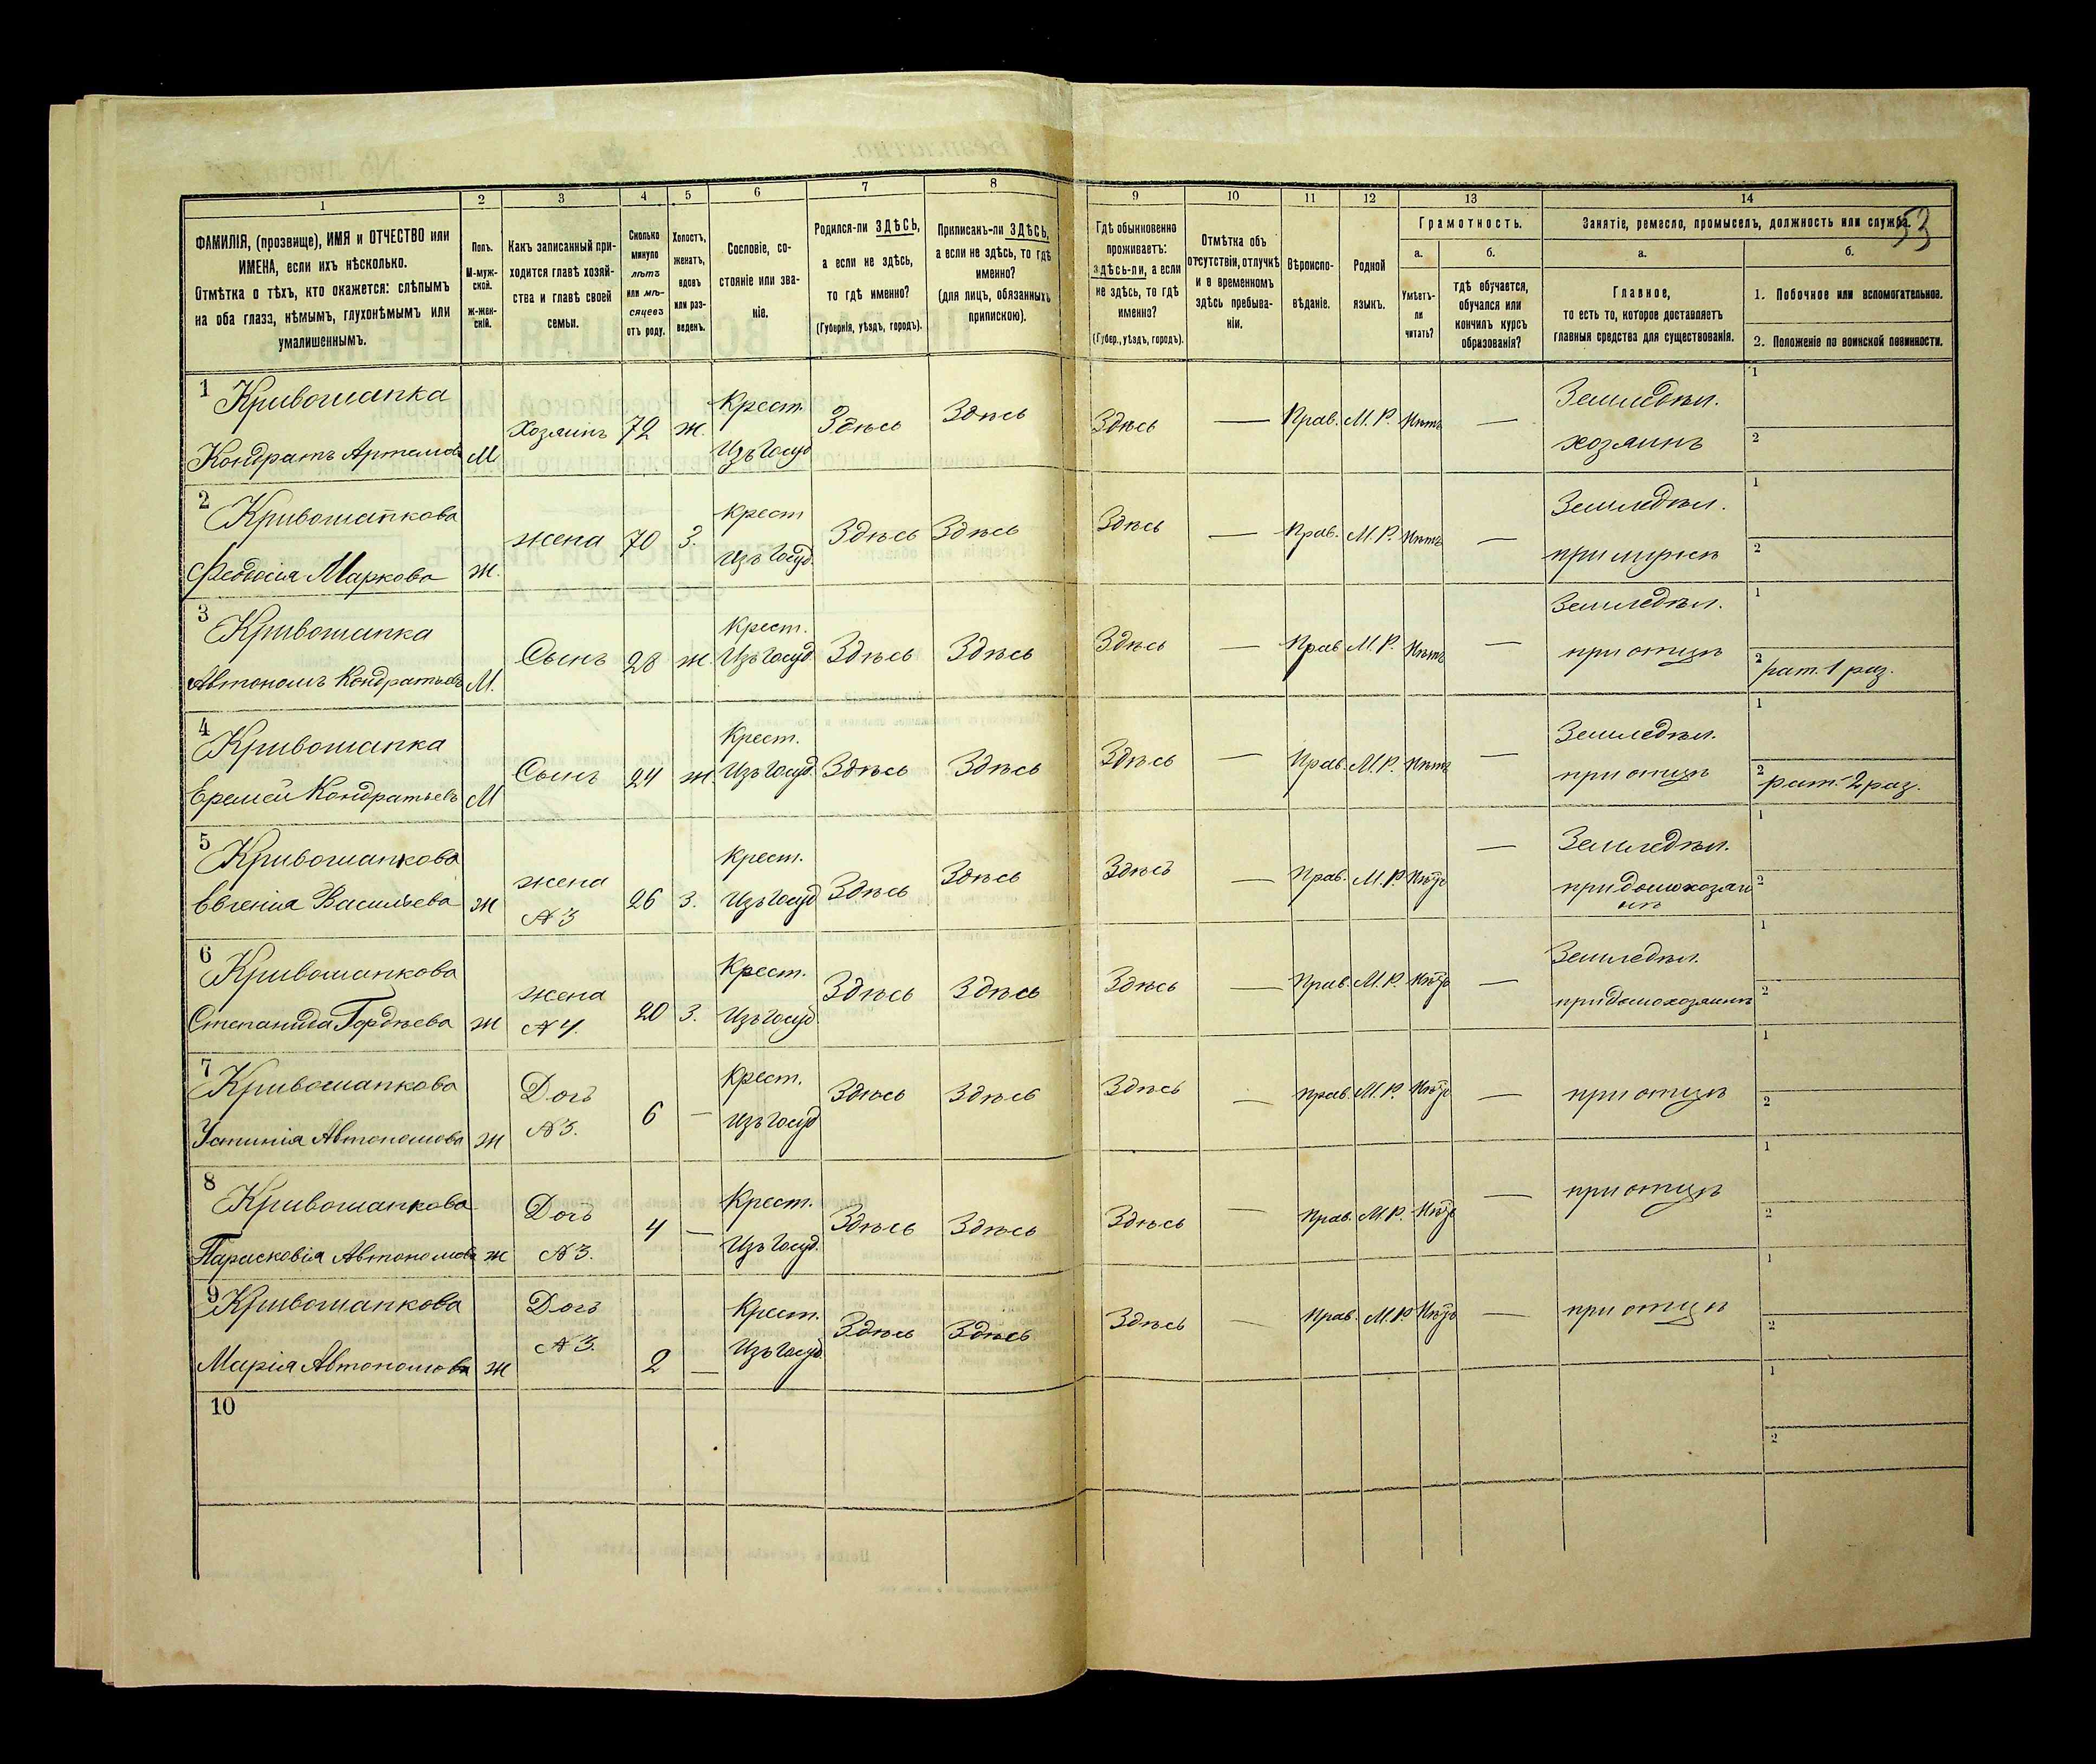 53
1 2 3 4 5 6 7 8 9 10 11 12 13 14
ФАМИЛІЯ, (прозвище), ИМЯ и ОТЧЕСТВО или
ИМЕНА, если ихъ нѣсколько.
Отмѣтка о тѣхъ, кто окажется: слѣпымъ
на оба глаза, нѣмымъ, глухонѣмымъ или
умалишеннымъ.
Полъ.
М-муж-
ской.
ж-жен-
скій.
Какъ записанный при-
ходится главѣ хозяй-
ства и главѣ своей
семьи.
Сколько
минуло
лѣтъ
или мѣ-
сяцевъ
отъ роду.
Холостъ,
женатъ,
вдовъ
или раз-
веденъ.
Сословіе, со-
стояніе или зва-
ніе.
Родился-ли ЗДѢСЬ,
а если не здѣсь,
то гдѣ именно?
(Губернія, уѣздъ, городъ).
Приписанъ-ли ЗДѢСЬ,
а если не здѣсь, то гдѣ
именно?
(для лицъ, обязанныхъ
припискою).
Гдѣ обыкновенно
проживаетъ:
здѣсь-ли, а если
не здѣсь, то гдѣ
именно?
(Губер., уѣздъ, городъ).
Отмѣтка объ
отсутствіи, отлучкѣ
и о временномъ
здѣсь пребыва-
ніи.
Вѣроиспо-
вѣданіе.
Родной
языкъ.
Грамотность.
а.
Умѣетъ-
ли
читать?
б.
гдѣ обучается,
обучался или
кончилъ курсъ
образованія?
Занятіе, ремесло, промыселъ, должность или служба.
а.
Главное,
то есть то, которое доставляетъ
главныя средства для существованія.
б.
1. Побочное или вспомогательное.
2. Положеніе по воинской повинности.
1
Кривошапка Крест. Здѣсь Землєдѣл. 1
Хозяинъ 72 ж. Здѣсь Здѣсь — Прав. М. Р. Нѣтъ —
Кондратъ Артемов М Изъ Госуд хозяинъ 2
2
Кривошапкова Крест Здѣсь Земледѣл. 1
жена 70 З. Здѣсь Здѣсь — Прав. М. Р. Нѣтъ —
Феодосія Маркова ж. Изъ Госуд. при мужѣ 2
3
Кривошапка Крест. Земледѣл. 1
Сынъ 28 ж. Изъ Госуд Здѣсь Здѣсь Здѣсь — Прав М. Р. Нѣтъ — при отцѣ
Автономъ Кондратьевъ М. 2 рат. 1 раз.
4
Кривошапка Крест. Земледѣл. 1
Сынъ 24 ж Изъ Госуд. Здѣсь Здѣсь Здѣсь — Прав. М. Р. Нѣтъ — при отцѣ
Еремѣй Кондратьевъ М 2 рат. 2 раз.
5
Кривошапкова Крест. Здѣсь Земледѣл. 1
жена 26 З. Здѣсь Здѣсь — Прав. М. Р. Нѣтъ —
Евгенія Васильева ж N 3 Изъ Госуд при домохозяи 2
нѣ
6
Кривошапкова Крест. Земледѣл. 1
жена 20 З. Здѣсь Здѣсь Здѣсь — Прав. М. Р. Нѣтъ —
Степанида Гордѣева ж N 4. Изъ Госуд. при домохозяинѣ 2
7
Кривошапкова Дочь Крест. 1
6 — Здѣсь Здѣсь Здѣсь — Прав. М. Р. Нѣтъ — при отцѣ
Устинія Автономова ж N 3. Изъ Госуд 2
8
Кривошапкова Дочь Крест. при отцѣ 1
4 — Здѣсь Здѣсь Здѣсь — Прав. М. Р. Нѣтъ —
Парасковія Автономова ж N 3. Изъ Госуд. 2
9
Кривошапкова Дочь Крест. 1
N 3. Здѣсь Здѣсь Здѣсь — Прав. М. Р. Нѣтъ — при отцѣ
Марія Автономова ж 2 — Изъ Госуд. 2
10 1
2